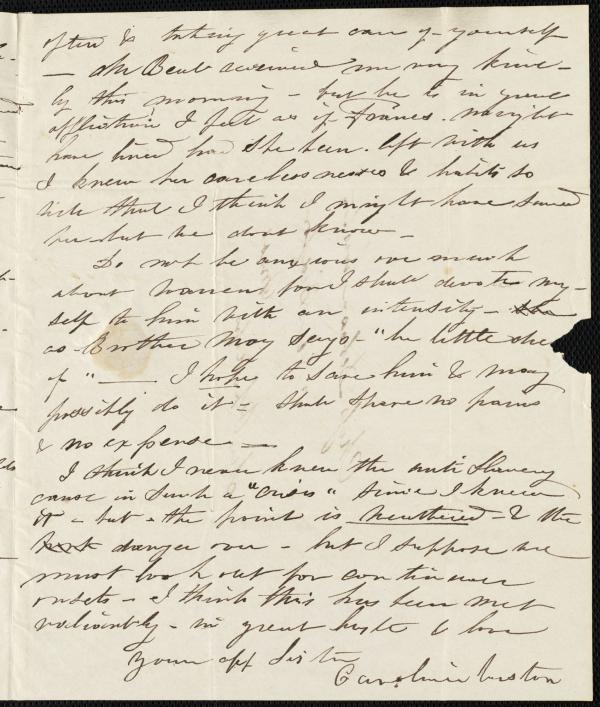 often & taking great care of yourself
— Mr Beal received me very kind-
ly this morning – but he is in great
affliction I feel as if Frances. might
have lived had she been. left with us
I knew her carelessnesses & habits so
that I think I might have saved
her – but we dont know –
Do not be anxious over much
about Warren for I shall devote my-
self to him with an intensity –
as Brother May says – "be little
of" — I hope to save him & may
possibly do it – shall spare no pains
& no expense —
I think I never knew the anti Slavery
cause in such a "crisis" since I knew
it – but – the point is weathered – & the
danger over – but I suppose we
must look out for continuous
onsets – I think this has been met
valiantly – in great haste & love
Your aff Sister
Caroline Weston